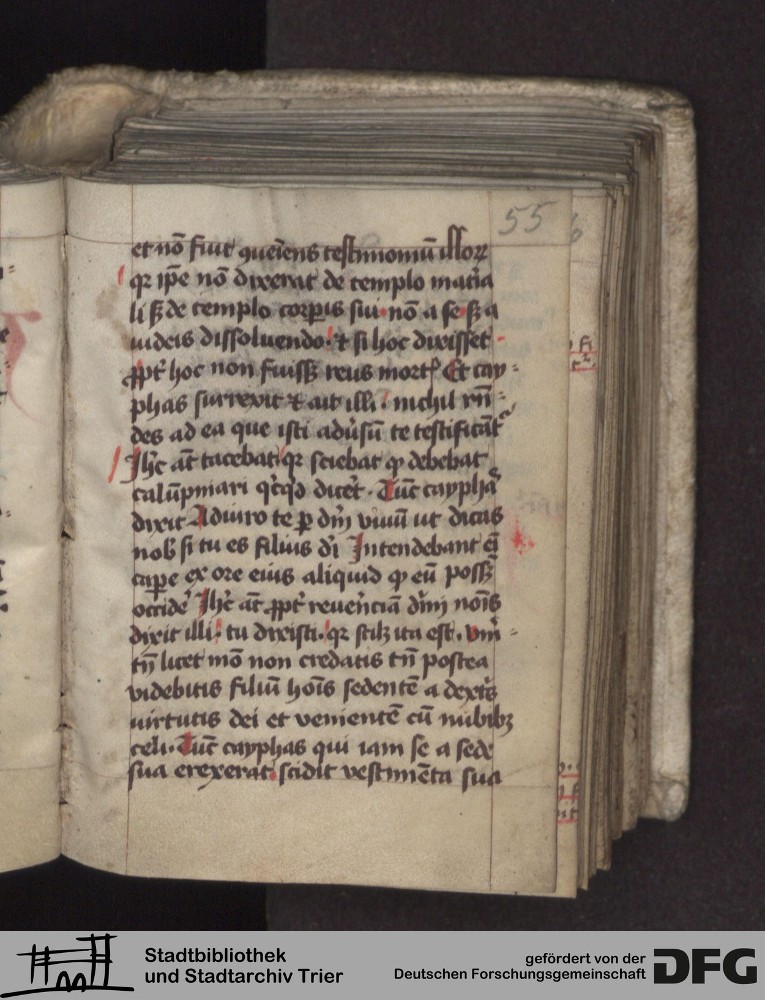 55
et nō fuit queīens testimoniū illoꝝ
qꝛ ip̄e nō dixerat de templo mat̄ia
li sꝫ de templo corꝑis sui · nō a se sꝫ a
iudeis dissoluendo · ⁊ si hoc dixisset
ꝓpt̄ hoc non fuissꝫ reus mort⁹ Et cay
phas surrexit ⁊ ait illi · nichil rn̄
des ad ea que isti adūsū te testificāt̄
Ihc̄ at̄ tacebat qꝛ sciebat ꝙ debebat
calūpniari qͥcqͥd dicēt · Tūc cayphā
dixit Adiuro te ꝑ dm̄ viuū ut dicas
nob̄ si tu es filius dī Intendebant em̄
capꝑe ex ore eius aliquid ꝙ eū possꝫ
occidē Ihc̄ at̄ ꝓpt̄ reuēnciā dīni noīs
dixit illi · tu dixisti · qꝛ scilꝫ ita est ·
tn̄ licet mō non credatis tn̄ postea
videbitis filiū hoīs sedentē a dext̄s
uirtutis dei et venientē cū nubibꝫ
celi · Tūc cayphas qui iam se a sede
sua erexerat · scidit vestimēta sua
Stadtbibliothek
und Stadtarchiv Trier
gefördert von der
Deutschen Forschungsgemeinschaft
DFG